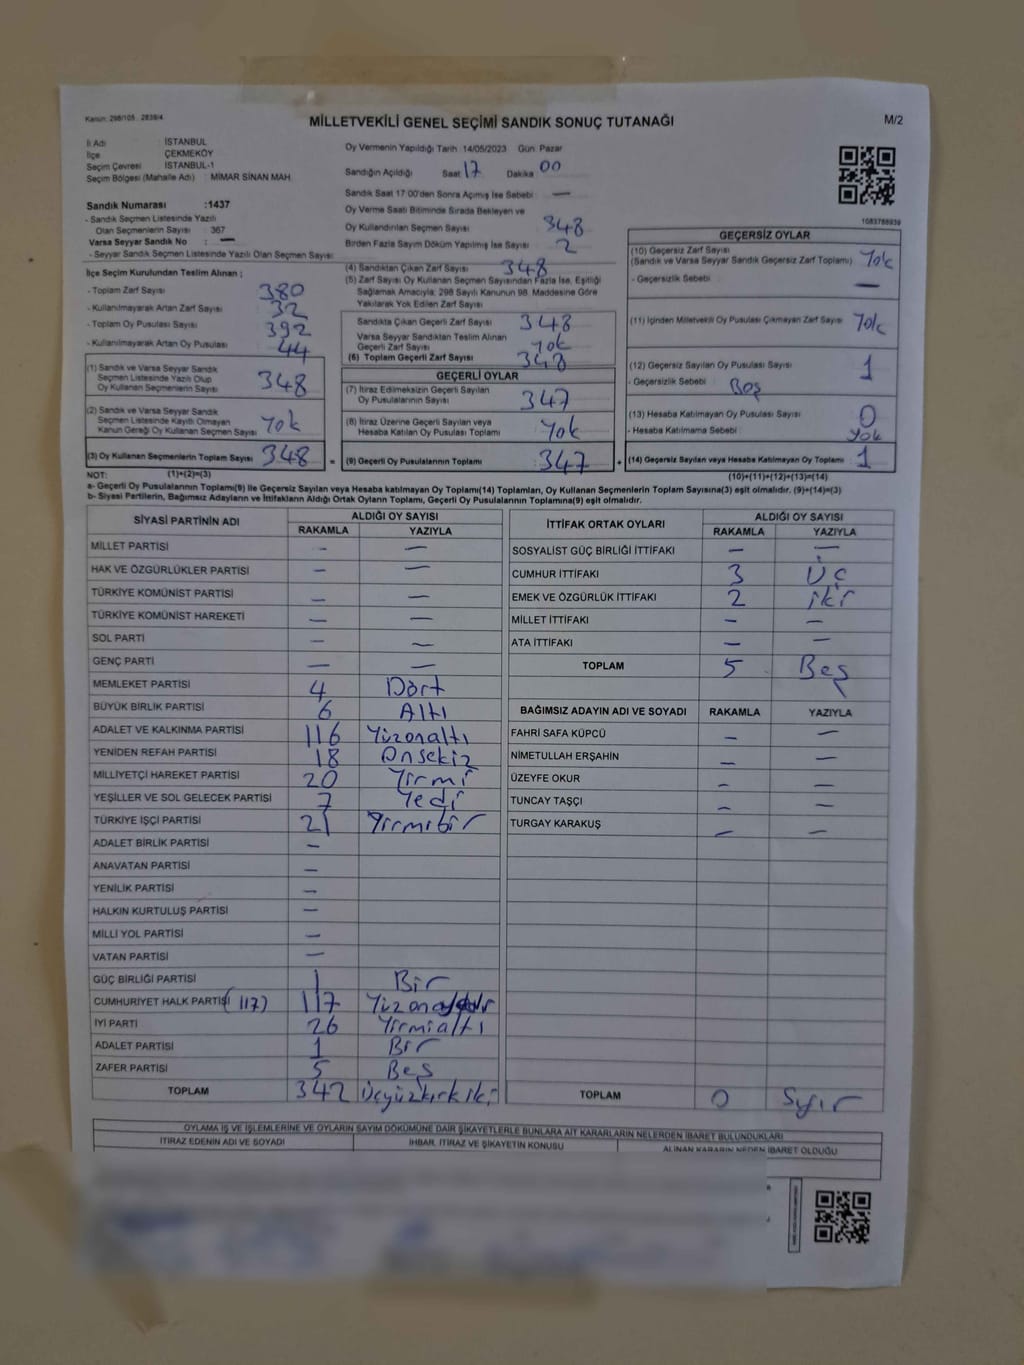 Kanun: 298/105 , 2839/4
MİLLETVEKİLİ GENEL SEÇİMİ SANDIK SONUÇ TUTANAĞI
M/2
İl Adı : İSTANBUL
İlçe : ÇEKMEKÖY
Seçim Çevresi : İSTANBUL-1
Seçim Bölgesi (Mahalle Adı) : MİMAR SİNAN MAH.
Sandık Numarası :1437
- Sandık Seçmen Listesinde Yazılı
Olan Seçmenlerin Sayısı : 367
Varsa Seyyar Sandık No : —
- Seyyar Sandık Seçmen Listesinde Yazılı Olan Seçmen Sayısı:
Oy Vermenin Yapıldığı Tarih 14/05/2023 Gün Pazar
Sandığın Açıldığı Saat 17 Dakika 00
Sandık Saat 17:00'den Sonra Açılmış İse Sebebi : —
Oy Verme Saati Bitiminde Sırada Bekleyen ve
Oy Kullandırılan Seçmen Sayısı 348
Birden Fazla Sayım Döküm Yapılmış İse Sayısı 2
1083788939
İlçe Seçim Kurulundan Teslim Alınan ;
- Toplam Zarf Sayısı 380
- Kullanılmayarak Artan Zarf Sayısı 32
- Toplam Oy Pusulası Sayısı 392
- Kullanılmayarak Artan Oy Pusulası 44
(1) Sandık ve Varsa Seyyar Sandık
Seçmen Listesinde Yazılı Olup
Oy Kullanan Seçmenlerin Sayısı 348
(2) Sandık ve Varsa Seyyar Sandık
Seçmen Listesinde Kayıtlı Olmayan
Kanun Gereği Oy Kullanan Seçmen Sayısı Yok
(3) Oy Kullanan Seçmenlerin Toplam Sayısı 348 =
(4) Sandıktan Çıkan Zarf Sayısı 348
(5) Zarf Sayısı Oy Kullanan Seçmen Sayısından Fazla İse, Eşitliği
Sağlamak Amacıyla; 298 Sayılı Kanunun 98. Maddesine Göre
Yakılarak Yok Edilen Zarf Sayısı
Sandıkta Çıkan Geçerli Zarf Sayısı 348
Varsa Seyyar Sandıktan Teslim Alınan
Geçerli Zarf Sayısı Yok
(6) Toplam Geçerli Zarf Sayısı 348
GEÇERLİ OYLAR
(7) İtiraz Edilmeksizin Geçerli Sayılan
Oy Pusulalarının Sayısı 347
(8) İtiraz Üzerine Geçerli Sayılan veya
Hesaba Katılan Oy Pusulası Toplamı Yok
(9) Geçerli Oy Pusulalarının Toplamı 347 +
GEÇERSİZ OYLAR
(10) Geçersiz Zarf Sayısı
(Sandık ve Varsa Seyyar Sandık Geçersiz Zarf Toplamı) Yok
- Geçersizlik Sebebi : —
(11) İçinden Milletvekili Oy Pusulası Çıkmayan Zarf Sayısı Yok
(12) Geçersiz Sayılan Oy Pusulası Sayısı 1
- Geçersizlik Sebebi : Boş
(13) Hesaba Katılmayan Oy Pusulası Sayısı 0
- Hesaba Katılmama Sebebi : Yok
(14) Geçersiz Sayılan veya Hesaba Katılmayan Oy Toplamı 1
NOT: (1)+(2)=(3) (10)+(11)+(12)+(13)=(14)
a- Geçerli Oy Pusulalarının Toplamı(9) ile Geçersiz Sayılan veya Hesaba Katılmayan Oy Toplamı(14) Toplamları, Oy Kullanan Seçmenlerin Toplam Sayısına(3) eşit olmalıdır. (9)+(14)=(3)
b- Siyasi Partilerin, Bağımsız Adayların ve İttifakların Aldığı Ortak Oyların Toplamı, Geçerli Oy Pusulalarının Toplamına(9) eşit olmalıdır.
SİYASİ PARTİNİN ADI ALDIĞI OY SAYISI
RAKAMLA YAZIYLA
MİLLET PARTİSİ — —
HAK VE ÖZGÜRLÜKLER PARTİSİ — —
TÜRKİYE KOMÜNİST PARTİSİ — —
TÜRKİYE KOMÜNİST HAREKETİ — —
SOL PARTİ — —
GENÇ PARTİ — —
MEMLEKET PARTİSİ 4 Dört
BÜYÜK BİRLİK PARTİSİ 6 Altı
ADALET VE KALKINMA PARTİSİ 116 Yüzonaltı
YENİDEN REFAH PARTİSİ 18 Onsekiz
MİLLİYETÇİ HAREKET PARTİSİ 20 Yirmi
YEŞİLLER VE SOL GELECEK PARTİSİ 7 Yedi
TÜRKİYE İŞÇİ PARTİSİ 21 Yirmibir
ADALET BİRLİK PARTİSİ —
ANAVATAN PARTİSİ —
YENİLİK PARTİSİ —
HALKIN KURTULUŞ PARTİSİ —
MİLLİ YOL PARTİSİ —
VATAN PARTİSİ —
GÜÇ BİRLİĞİ PARTİSİ 1 Bir
CUMHURİYET HALK PARTİSİ (117) 117
İYİ PARTİ 26 Yirmialtı
ADALET PARTİSİ 1 Bir
ZAFER PARTİSİ 5 Beş
TOPLAM 342 Üçyüzkırkiki
İTTİFAK ORTAK OYLARI ALDIĞI OY SAYISI
RAKAMLA YAZIYLA
SOSYALİST GÜÇ BİRLİĞİ İTTİFAKI — —
CUMHUR İTTİFAKI 3 Üç
EMEK VE ÖZGÜRLÜK İTTİFAKI 2 iki
MİLLET İTTİFAKI — —
ATA İTTİFAKI — —
TOPLAM 5 Beş
BAĞIMSIZ ADAYIN ADI VE SOYADI RAKAMLA YAZIYLA
FAHRİ SAFA KÜPCÜ — —
NİMETULLAH ERŞAHİN — —
ÜZEYFE OKUR — —
TUNCAY TAŞÇI — —
TURGAY KARAKUŞ — —
TOPLAM 0 Sıfır
OYLAMA İŞ VE İŞLEMLERİNE VE OYLARIN SAYIM DÖKÜMÜNE DAİR ŞİKAYETLERLE BUNLARA AİT KARARLARIN NELERDEN İBARET BULUNDUKLARI
İTİRAZ EDENİN ADI VE SOYADI İHBAR, İTİRAZ VE ŞİKAYETİN KONUSU ALINAN KARARIN NEDEN İBARET OLDUĞU